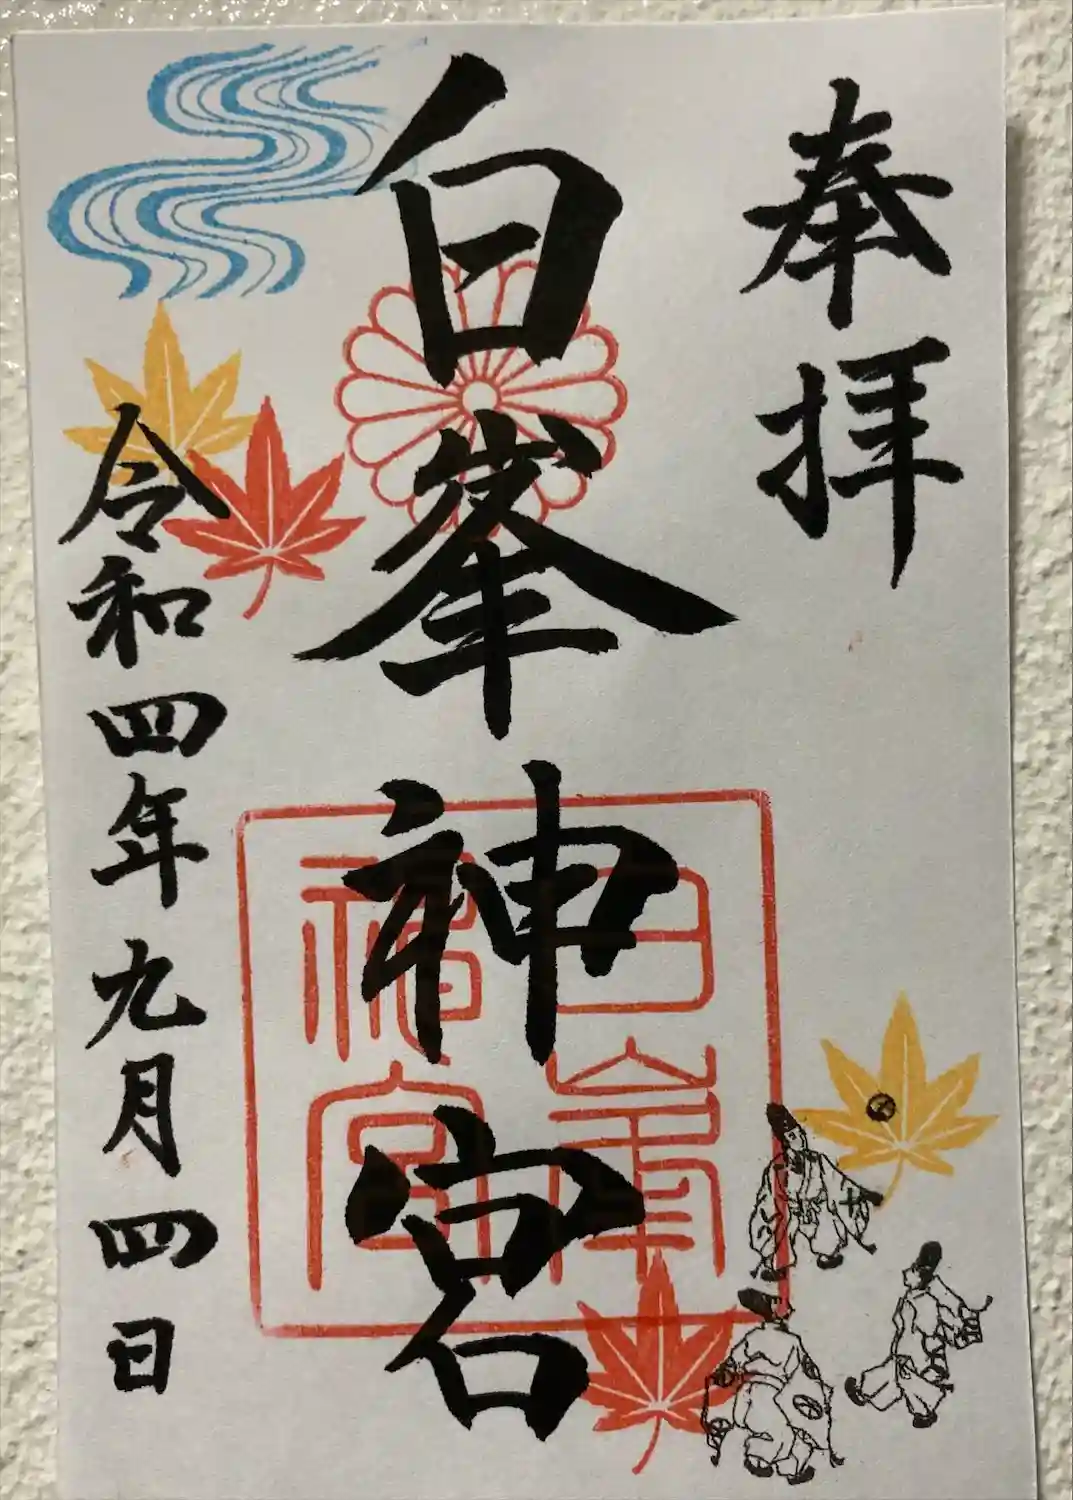 奉拝
白峯神宮
白峯
神宮
令和四年九月四日